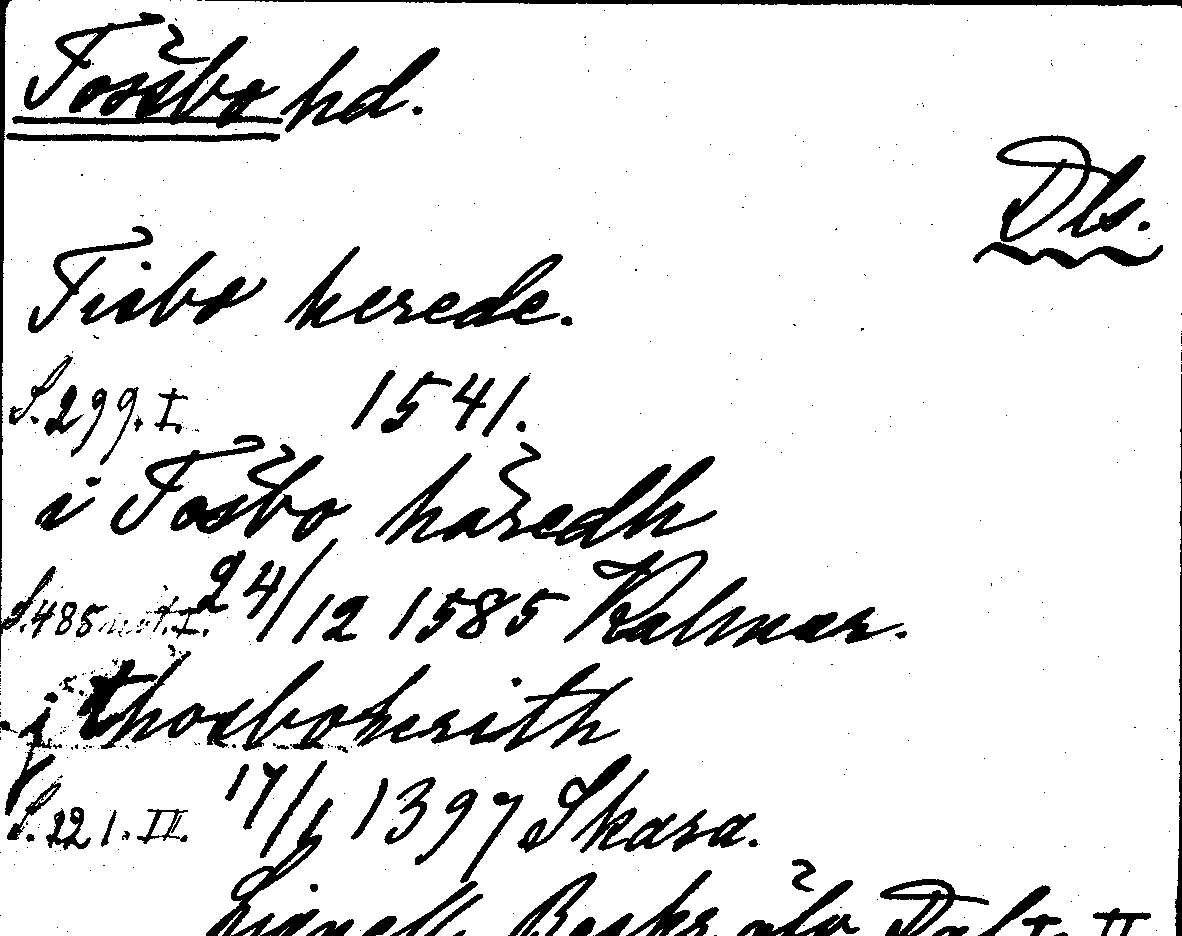 Tössbo hd.
Dls.
Tisbo herede.
S. 299. I. 1541.
i Tösbo häredh
S. 485 not. I. 24/12 1585 Kalmar.
j thosboherith
S. 221. II. 17/6 1397 Skara.
Lignell, Beskr. öfv. Dal I. II